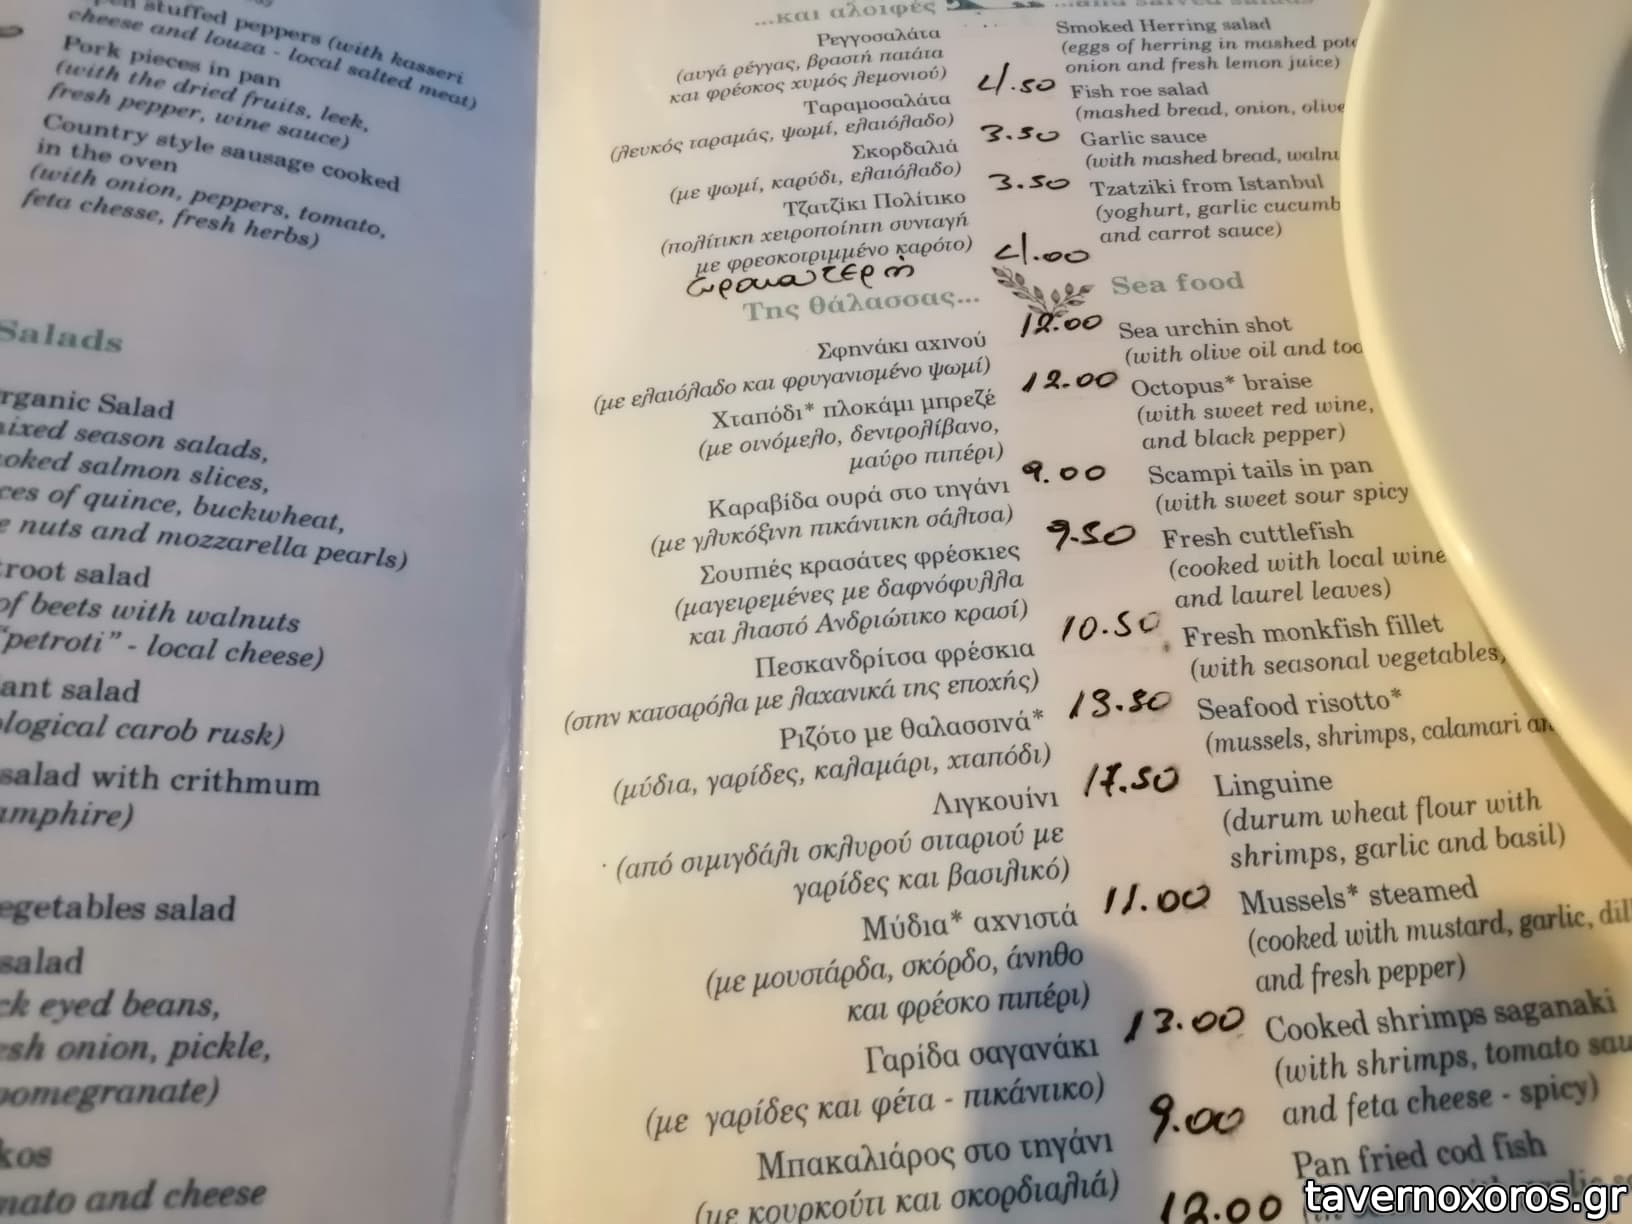 stuffed peppers (with kasseri
cheese and louza - local salted meat)
Pork pieces in pan
(with the dried fruits, leek,
fresh pepper, wine sauce)
Country style sausage cooked
in the oven
(with onion, peppers, tomato,
feta chesse, fresh herbs)
Salads
rganic Salad
ixed season salads,
oked salmon slices,
ces of quince, buckwheat,
e nuts and mozzarella pearls)
root salad
of beets with walnuts
"petroti" - local cheese)
ant salad
ological carob rusk)
salad with crithmum
amphire)
egetables salad
salad
ck eyed beans,
esh onion, pickle,
pomegranate)
kos
mato and cheese
...και αλοιφές
Ρεγγοσαλάτα
(αυγά ρέγγας, βραστή πατάτα
και φρέσκος χυμός λεμονιού)
Ταραμοσαλάτα
(λευκός ταραμάς, ψωμί, ελαιόλαδο)
Σκορδαλιά
(με ψωμί, καρύδι, ελαιόλαδο)
Τζατζίκι Πολίτικο
(πολίτικη χειροποίητη συνταγή
με φρεσκοτριμμένο καρότο)
Της θάλασσας...
Σφηνάκι αχινού
(με ελαιόλαδο και φρυγανισμένο ψωμί)
Χταπόδι* πλοκάμι μπρεζέ
(με οινόμελο, δεντρολίβανο,
μαύρο πιπέρι)
Καραβίδα ουρά στο τηγάνι
(με γλυκόξινη πικάντικη σάλτσα)
Σουπιές κρασάτες φρέσκιες
(μαγειρεμένες με δαφνόφυλλα
και λιαστό Ανδριώτικο κρασί)
Πεσκανδρίτσα φρέσκια
(στην κατσαρόλα με λαχανικά της εποχής)
Ριζότο με θαλασσινά*
(μύδια, γαρίδες, καλαμάρι, χταπόδι)
Λιγκουίνι
(από σιμιγδάλι σκληρού σιταριού με
γαρίδες και βασιλικό)
Μύδια* αχνιστά
(με μουστάρδα, σκόρδο, άνηθο
και φρέσκο πιπέρι)
Γαρίδα σαγανάκι
(με γαρίδες και φέτα - πικάντικο)
Μπακαλιάρος στο τηγάνι
(με κουρκούτι και σκορδιαλιά)
4.50
3.50
3.50
4.00
12.00
12.00
9.00
9.50
10.50
13.50
17.50
11.00
13.00
9.00
12.00
Smoked Herring salad
(eggs of herring in mashed pot
onion and fresh lemon juice)
Fish roe salad
(mashed bread, onion, olive
Garlic sauce
(with mashed bread, waln
Tzatziki from Istanbul
(yoghurt, garlic cucumb
and carrot sauce)
Sea food
Sea urchin shot
(with olive oil and toa
Octopus* braise
(with sweet red wine,
and black pepper)
Scampi tails in pan
(with sweet sour spicy
Fresh cuttlefish
(cooked with local wine
and laurel leaves)
Fresh monkfish fillet
(with seasonal vegetables)
Seafood risotto*
(mussels, shrimps, calamari an
Linguine
(durum wheat flour with
shrimps, garlic and basil)
Mussels* steamed
(cooked with mustard, garlic, dill
and fresh pepper)
Cooked shrimps saganaki
(with shrimps, tomato sau
and feta cheese - spicy)
Pan fried cod fish
tavernoxoros.gr